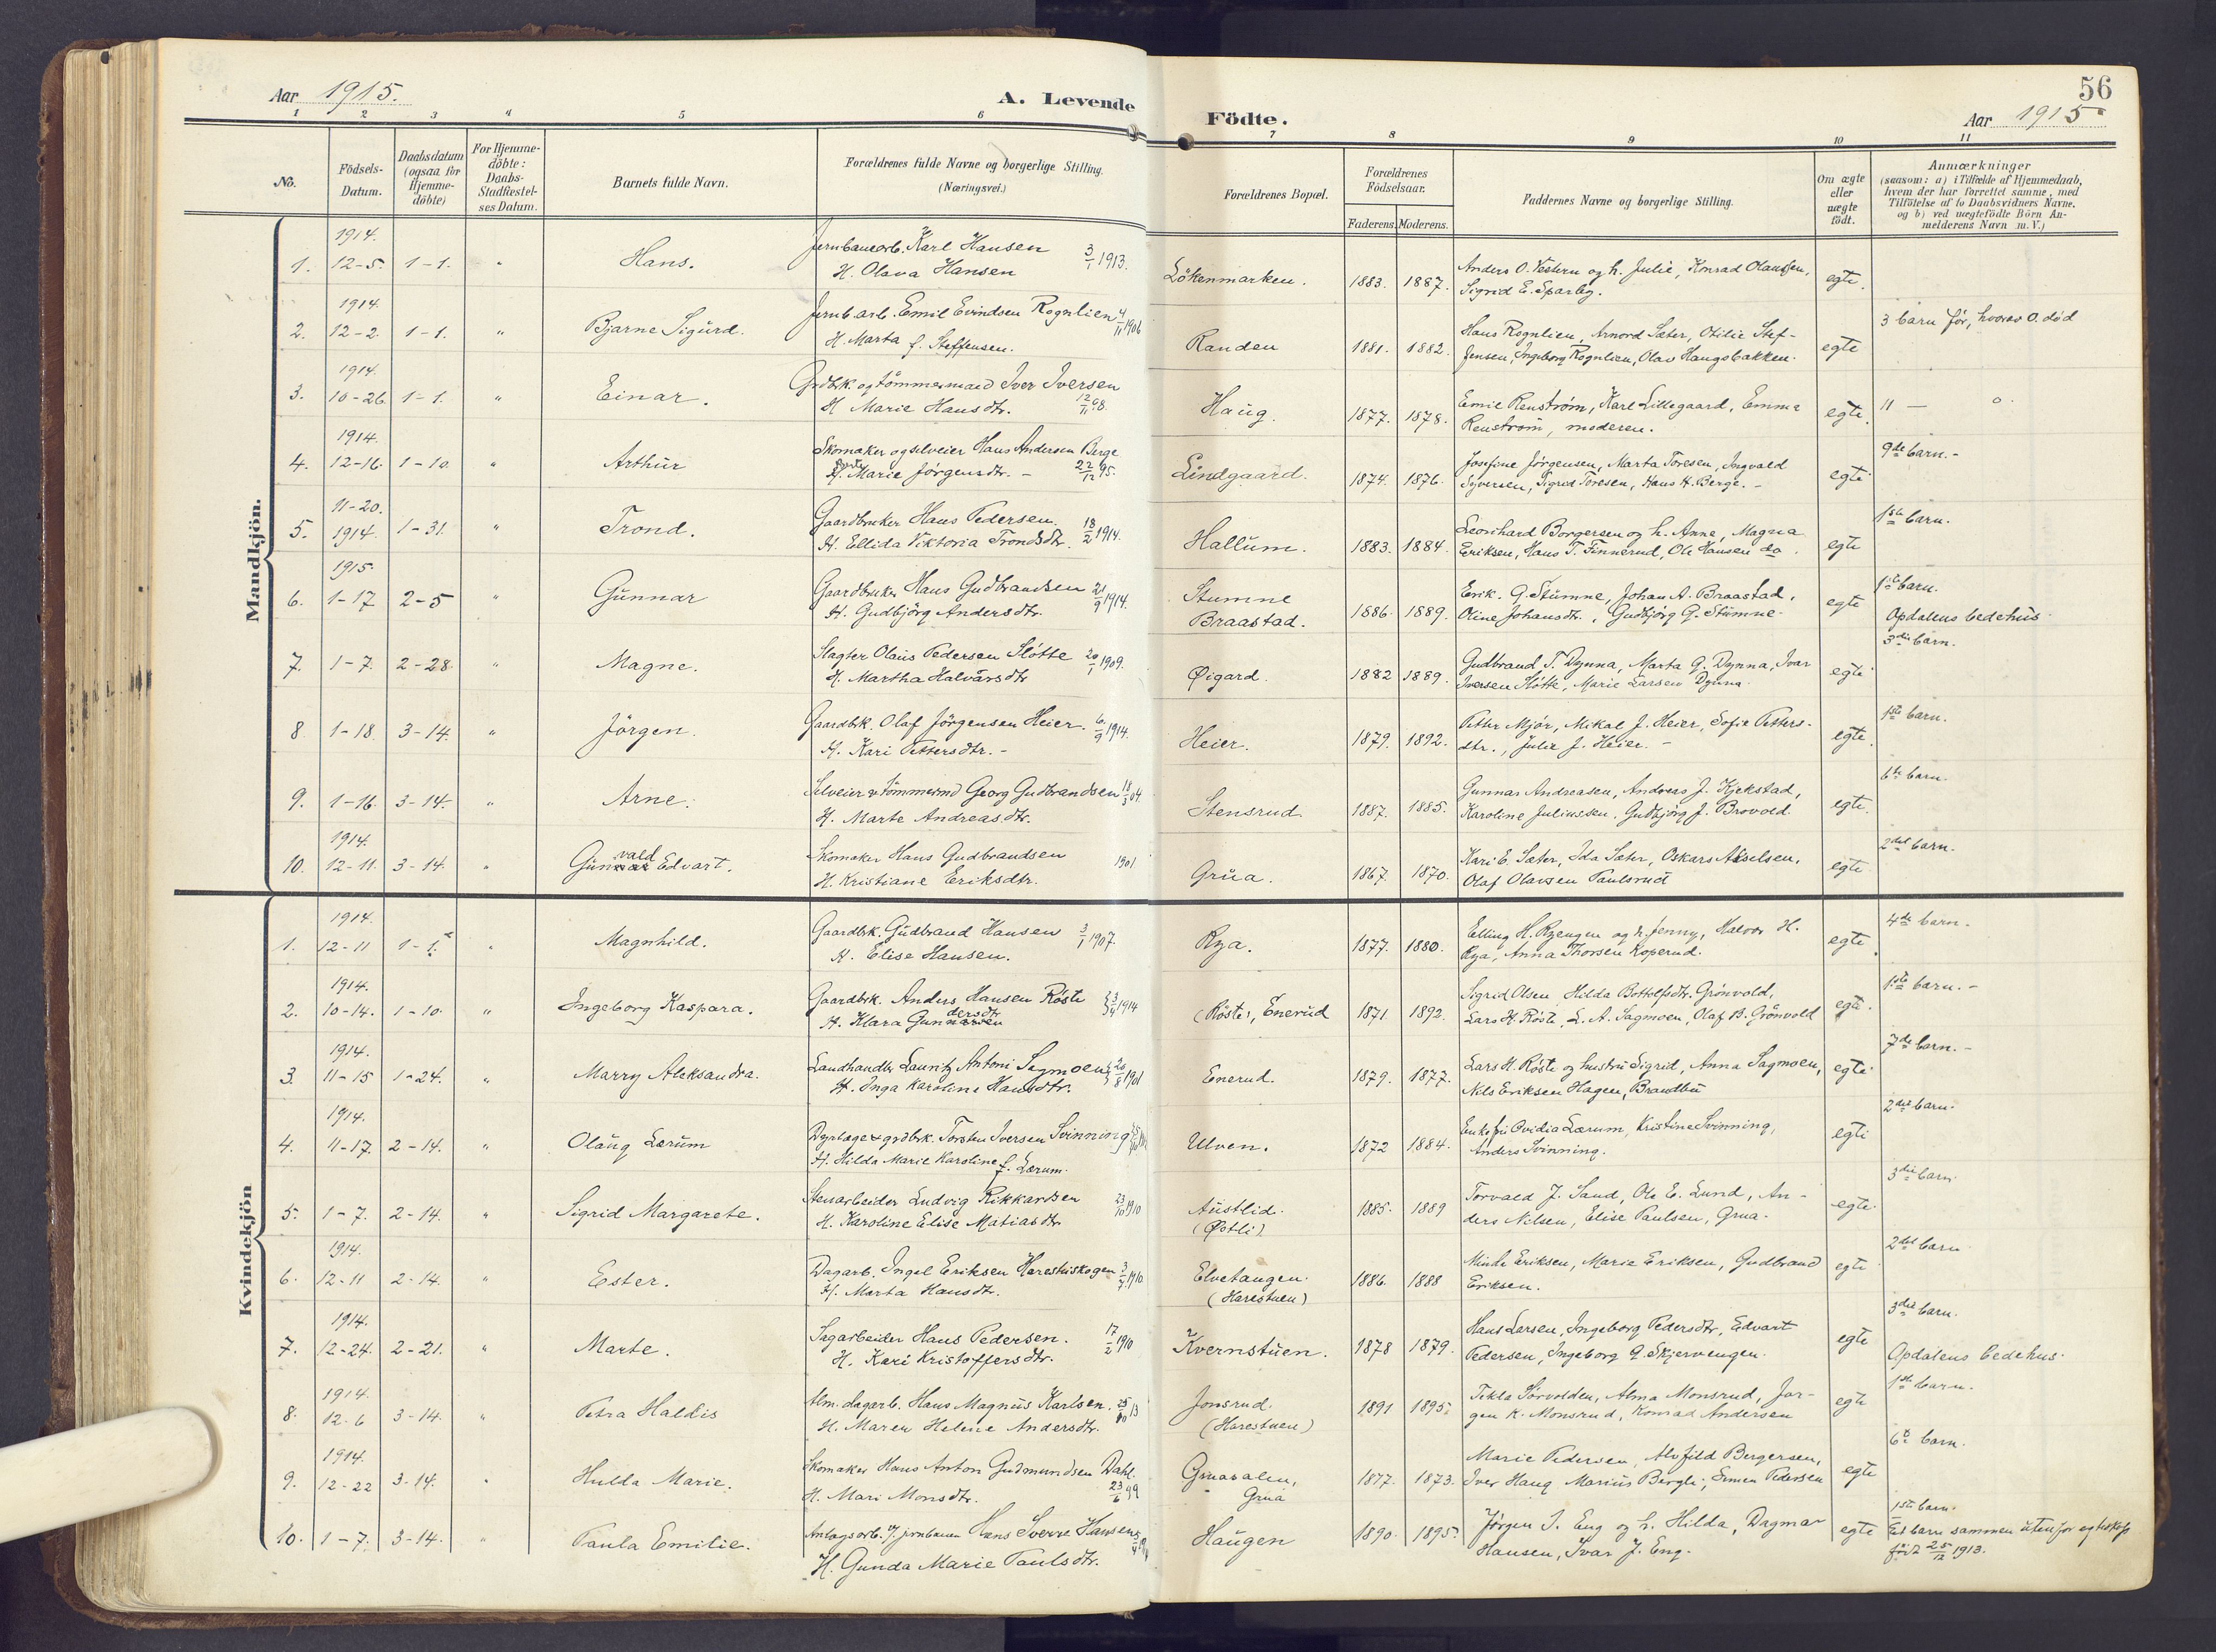 Aar 1915.
A. Levende
Födte.
56
Aar 1915
1 2 3 4 5 6 7 8 9 10 11
No.
Födsels-
Datum.
Daabsdatum
(ogsaa for
Hjemme-
döbte)
For Hjemme-
döbte:
Daabs-
Stadfæstel-
ses Datum.
Barnets fulde Navn.
Forældrenes fulde Navne og borgerlige Stilling.
(Næringsvei.)
Forældrenes Bopæl.
Forældrenes
Födselsaar.
Faderens. Moderens.
Faddernes Navne og borgerlige Stilling.
Om ægte
eller
uægte
födt.
Anmærkninger
(saasom: a) i Tilfælde af Hjemmedaab,
hvem der har forrettet samme, med
Tilföielse af to Daabsvidners Navne.
og b) ved uægtefödte Börn An-
melderens Navn m. V.)
Mandkjön.
1914.
1. 12-5. 1-1. " Hans. Jernbanearb. Karl Hansen 3/1 1913.
H. Olava Hansen
Lökenmarken. 1883. 1887. Anders O. Vestern og h. Julie, Konrad Olaussen,
Sigrid E. Sparby. egte.
1914.
2. 12-2. 1-1. " Bjarne Sigurd. Jernb. arb. Emil Evindsen Rognlien 4/11 1906
H. Marta f. Steffensen.
Randen 1881. 1882. Hans Rognlien, Arnord Sæter, Otilie Stef-
fensen, Ingeborg Rognlien, Olav Haugsbakken. egte 3 barn før, hvorav 0. død
1914.
3. 10-26 1-1. " Einar. Grdbk. og tömmermand Iver Iversen
H Marie Hansdtr. 12/11 98.
Haug. 1877. 1878. Emil Renström, Karl Lillegaard, Emma
Renstrom, moderen. egte. 11 — 0.
1914.
4. 12-16. 1-10. " Arthur Skomaker og selveier Hans Andersen Berge
H. Marie Jörgensdtr. - 22/12 95.
Lindgaard. 1874. 1876. Josefine Jörgensen, Marta Toresen, Ingvald
Syversen, Sigrid Toresen, Hans H. Berge. - egte 9de barn. -
11-20.
5. 1914. 1-31. " Trond. Gaardbruker Hans Pedersen. 18/2 1914.
H. Ellida Viktoria Trondsdtr.
Hallum. 1883. 1884. Leonhard Borgersen og h. Anne, Magna
Eriksen, Hans T. Finnerud, Ole Hansen do. egte 1ste barn.
1915.
6. 1-17 2-5 " Gunnar Gaardbruker Hans Gudbrandsen 21/9 1914.
H. Gudbjörg Andersdtr.
Stumne
Braastad. 1886. 1889. Erik. G. Stumne, Johan A. Braastad,
Oline Johansdtr., Gudbjörg G. Stumne. egte 1ste barn.
Opdalens bedehus.
7. 1-7. 2-28. " Magne. Slagter Olaus Pedersen Slótte 20/1 1909.
H. Martha Halvarsdtr
Øigard. 1882 1889. Gudbrand T. Dynna, Marta G. Dynna, Ivar
Iversen Slótte, Marie Larsen Dynna. egte 3die barn.
8. 1-18. 3-14. " Jörgen. Gaardbk. Olaf Jörgensen Heier. 6/9 1914.
H. Kari Pettersdtr. -
Heier. 1879. 1892. Petter Mjör, Mikal J. Heier, Sofie Petters-
dtr., Julie J. Heier. - egte. 1ste barn.
9. 1-16. 3-14. " Arne. Selveier & tömmermd Georg Gudbrandsen 18/3 04.
H. Marte Andreasdtr.
Stensrud. 1887. 1885. Gunnar Andreasen, Andreas J. Kjekstad,
Karoline Juliussen, Gudbjörg J. Brovold. egte. 6te barn.
1914.
10. 12-11. 3-14. " Gunvald Edvart. Skomaker Hans Gudbrandsen 1901
H. Kristiane Eriksdtr.
Grua. 1867. 1870. Kari E. Sæter, Ida Sæter, Oskars Akselsen,
Olaf Olavsen Paulsrud egte 2det barn.
Kvindekjön
1914.
1. 12-11 1-1. " Magnhild. Gaardbk. Gudbrand Hansen 3/1 1907.
H. Elise Hansen.
Rya. 1877. 1880. Elling H. Ryengen og h. Jenny, Halvor H.
Rya, Anna Thorsen Koperud. egte. 4de barn.
1914.
2. 10-14. 1-10. " Ingeborg Kaspara. Gaardbk. Anders Hansen Röste 3/4 1914
H. Klara Gundersdtr
(Röste), Enerud 1871 1892. Sigrid Olsen, Hilda Bottolfsdtr. Grönvold,
Lars H. Röste, L. A. Sagmoen, Olaf B. Grönvold egte. 1ste barn. -
1914.
3. 11-15 1-24. " Marry Aleksandra. Landhandler Lauritz Antoni Sagmoen 20/8 1901
H. Inga Karoline Hansdtr.
Enerud. 1879. 1877. Lars H. Röste og hustru Sigrid, Anna Sagmoen,
Nils Eriksen Hagen, Brandbu egte 7de barn. -
1914.
4. 11-17. 2-14. " Olaug Lærum Dyrlæge & grdbk. Torsten Iversen Svinning
H. Hilda Marie Karoline f. Lærum.
Ulven. 1872 1884. Enkefru Ovidia Lærum, Kristine Svinning,
Anders Svinning. egte 2det barn.
5. 1-7. 2-14. " Sigrid Margarete. Stenarbeider Ludvig Rikkardsen 23/10 1910
H. Karoline Elise Matiasdtr.
Austlid.
(Østli). 1885. 1889 Torvald J. Sand, Ole E. Lund, An-
ders Nilsen, Elise Paulsen, Grua. egte. 3die barn.
1914.
6. 12-11 2-14. " Ester. Dagarb. Ingel Eriksen Harestuskogen 3/7 1910.
H. Marta Hansdtr.
Elvetangen.
(Harestuen) 1886. 1888 Minda Eriksen, Marie Eriksen, Gudbrand
Eriksen. egte 2det barn
1914.
7. 12-24. 2-21. " Marte. Sagarbeider Hans Pedersen. 17/2 1910
H. Kari Kristoffersdtr.
Kvernstuen. 1878 1879. Hans Larsen, Ingeborg Pedersdtr, Edvart
Pedersen, Ingeborg G. Skjervengen. egte 3die barn.
Opdalens bedehus.
1914.
8. 12-6 3-14. " Petra Haldis Alm. dagarb. Hans Magnus Karlsen. 25/10 13
H. Maren Helene Andersdtr.
Jonsrud.
(Harestuen) 1891 1895. Tekla Sörvolden, Alma Monsrud, Jör-
gen K. Monsrud, Konrad Andersen egte 1ste barn.
1914.
9. 12-22 3-14. " Hulda Marie. Skomaker Hans Anton Gudmundsen Dahl.
H. Mari Monsdtr. 23/6 99
Gruadalen,
Grua 1877. 1873. Marie Pedersen, Alvfild Bergersen,
Iver Haug Marius Bergli, Simen Pedersen egte 6te barn.
10. 1-7. 3-14. " Paula Emilie. Anlægsarb. v/ jernbanen Hans Sverre Hansen
H. Gunda Marie Paulsdtr.
Haugen 1890. 1895. Jörgen I. Eng og h. Hilda, Dagmar
Hansen, Ivar J. Eng. egte 1ste barn.
Et barn sammen utenfor egteskap
födt 25/12 1913.